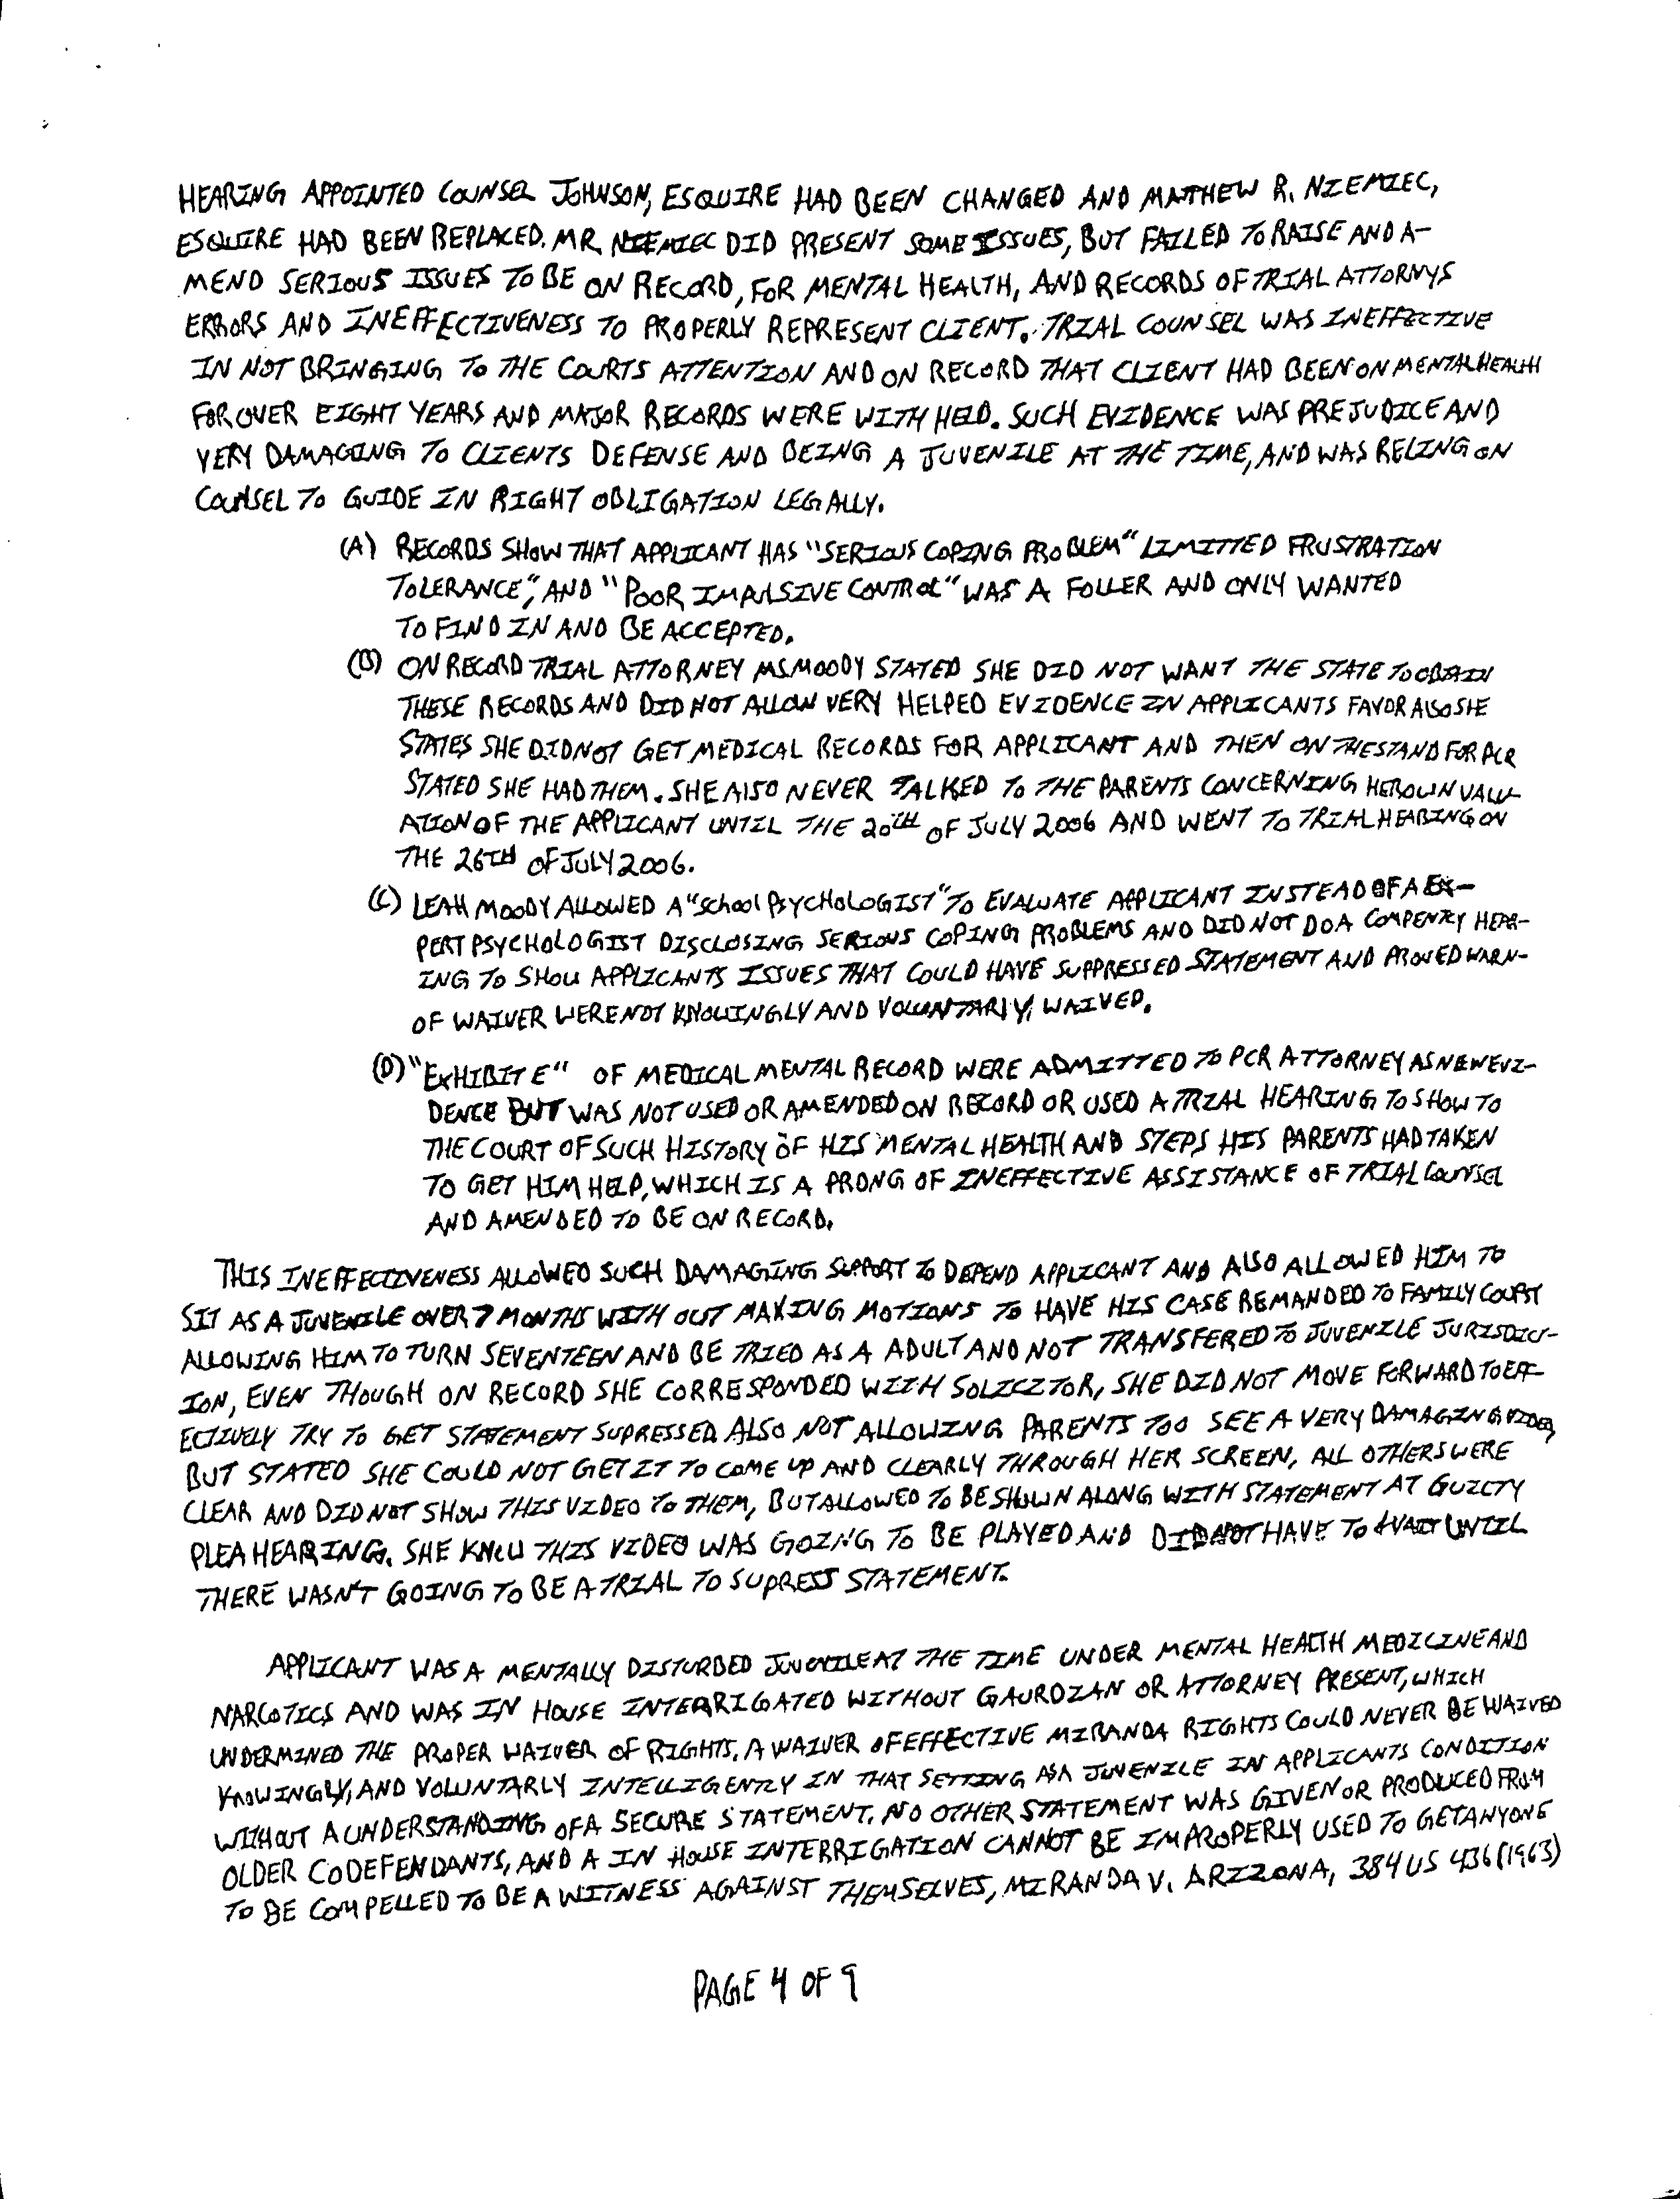 HEARING APPOINTED COUNSEL JOHNSON, ESQUIRE HAD BEEN CHANGED AND MATTHEW R. NIEMIEC,
ESQUIRE HAD BEEN REPLACED. MR. NIEMIEC DID PRESENT SOME ISSUES, BUT FAILED TO RAISE AND A-
MEND SERIOUS ISSUES TO BE ON RECORD, FOR MENTAL HEALTH, AND RECORDS OF TRIAL ATTORNYS
ERRORS AND INEFFECTIVENESS TO PROPERLY REPRESENT CLIENT. TRIAL COUNSEL WAS INEFFECTIVE
IN NOT BRINGING TO THE COURTS ATTENTION AND ON RECORD THAT CLIENT HAD BEEN ON MENTAL HEALTH
FOR OVER EIGHT YEARS AND MAJOR RECORDS WERE WITH HELD. SUCH EVIDENCE WAS PREJUDICE AND
VERY DAMAGING TO CLIENTS DEFENSE AND BEING A JUVENILE AT THE TIME, AND WAS RELING ON
COUNSEL TO GUIDE IN RIGHT OBLIGATION LEGALLY.
(A) RECORDS SHOW THAT APPLICANT HAS "SERIOUS COPING PROBLEM" LIMITTED FRUSTRATION
TOLERANCE", AND "POOR IMPULSIVE CONTROL" WAS A FOLLER AND ONLY WANTED
TO FIND IN AND BE ACCEPTED.
(B) ON RECORD TRIAL ATTORNEY MS.MOODY STATED SHE DID NOT WANT THE STATE TO OBTAIN
THESE RECORDS AND DID NOT ALLOW VERY HELPED EVIDENCE IN APPLICANTS FAVOR ALSO SHE
STATES SHE DID NOT GET MEDICAL RECORDS FOR APPLICANT AND THEN ON THE STAND FOR PCR
STATED SHE HAD THEM. SHE ALSO NEVER TALKED TO THE PARENTS CONCERNING HER OWN VALU-
ATION OF THE APPLICANT UNTIL THE 20TH OF JULY 2006 AND WENT TO TRIAL HEARING ON
THE 26TH OF JULY 2006.
(C) LEAH MOODY ALLOWED A "School PSYCHOLOGIST" TO EVALUATE APPLICANT INSTEAD OF A EX-
PERT PSYCHOLOGIST DISCLOSING SERIOUS COPING PROBLEMS AND DID NOT DO A COMPENTRY HEAR-
ING TO SHOW APPLICANTS ISSUES THAT COULD HAVE SUPPRESSED STATEMENT AND PROVED WARN-
OF WAIVER WERE NOT KNOWINGLY AND VOLUNTARIY, WAIVED.
(D) "EXHIBIT E" OF MEDICAL MENTAL RECORD WERE ADMITTED TO PCR ATTORNEY AS NEW EVI-
DENCE BUT WAS NOT USED OR AMENDED ON RECORD OR USED A TRIAL HEARING TO SHOW TO
THE COURT OF SUCH HISTORY OF HIS MENTAL HEALTH AND STEPS HIS PARENTS HAD TAKEN
TO GET HIM HELP, WHICH IS A PRONG OF INEFFECTIVE ASSISTANCE OF TRIAL COUNSEL
AND AMENDED TO BE ON RECORD.
THIS INEFFECTIVENESS ALLOWED SUCH DAMAGING SUPPORT TO DEPEND APPLICANT AND ALSO ALLOWED HIM TO
SIT AS A JUVENILE OVER 7 MONTHS WITH OUT MAKING MOTIONS TO HAVE HIS CASE REMANDED TO FAMILY COURT
ALLOWING HIM TO TURN SEVENTEEN AND BE TRIED AS A ADULT AND NOT TRANSFERED TO JUVENILE JURISDICT-
ION, EVEN THOUGH ON RECORD SHE CORRESPONDED WITH SOLICITOR, SHE DID NOT MOVE FORWARD TO EFF-
ECTIVELY TRY TO GET STATEMENT SUPRESSED ALSO NOT ALLOWING PARENTS TOO SEE A VERY DAMAGING VIDEO,
BUT STATED SHE COULD NOT GET IT TO COME UP AND CLEARLY THROUGH HER SCREEN, ALL OTHERS WERE
CLEAR AND DID NOT SHOW THIS VIDEO TO THEM, BUT ALLOWED TO BE SHOWN ALONG WITH STATEMENT AT GUILTY
PLEA HEARING. SHE KNEW THIS VIDEO WAS GOING TO BE PLAYED AND DID NOT HAVE TO WAIT UNTIL
THERE WASN'T GOING TO BE A TRIAL TO SUPRESS STATEMENT.
APPLICANT WAS A MENTALLY DISTURBED JUVENILE AT THE TIME UNDER MENTAL HEALTH MEDICINE AND
NARCOTICS AND WAS IN HOUSE INTERRIGATED WITHOUT GAURDIAN OR ATTORNEY PRESENT, WHICH
UNDERMINED THE PROPER WAIVER OF RIGHTS. A WAIVER OF EFFECTIVE MIRANDA RIGHTS COULD NEVER BE WAIVED
KNOWINGLY, AND VOLUNTARLY INTELLIGENTLY IN THAT SETTING AS A JUVENILE IN APPLICANTS CONDITION
WITHOUT A UNDERSTANDING OF A SECURE STATEMENT. NO OTHER STATEMENT WAS GIVEN OR PRODUCED FROM
OLDER CODEFENDANTS, AND A IN HOUSE INTERRIGATION CANNOT BE IMPROPERLY USED TO GET ANYONE
TO BE COMPELLED TO BE A WITNESS AGAINST THEMSELVES, MIRANDA V. ARIZONA, 384 US 436 (1963)
PAGE 4 OF 9